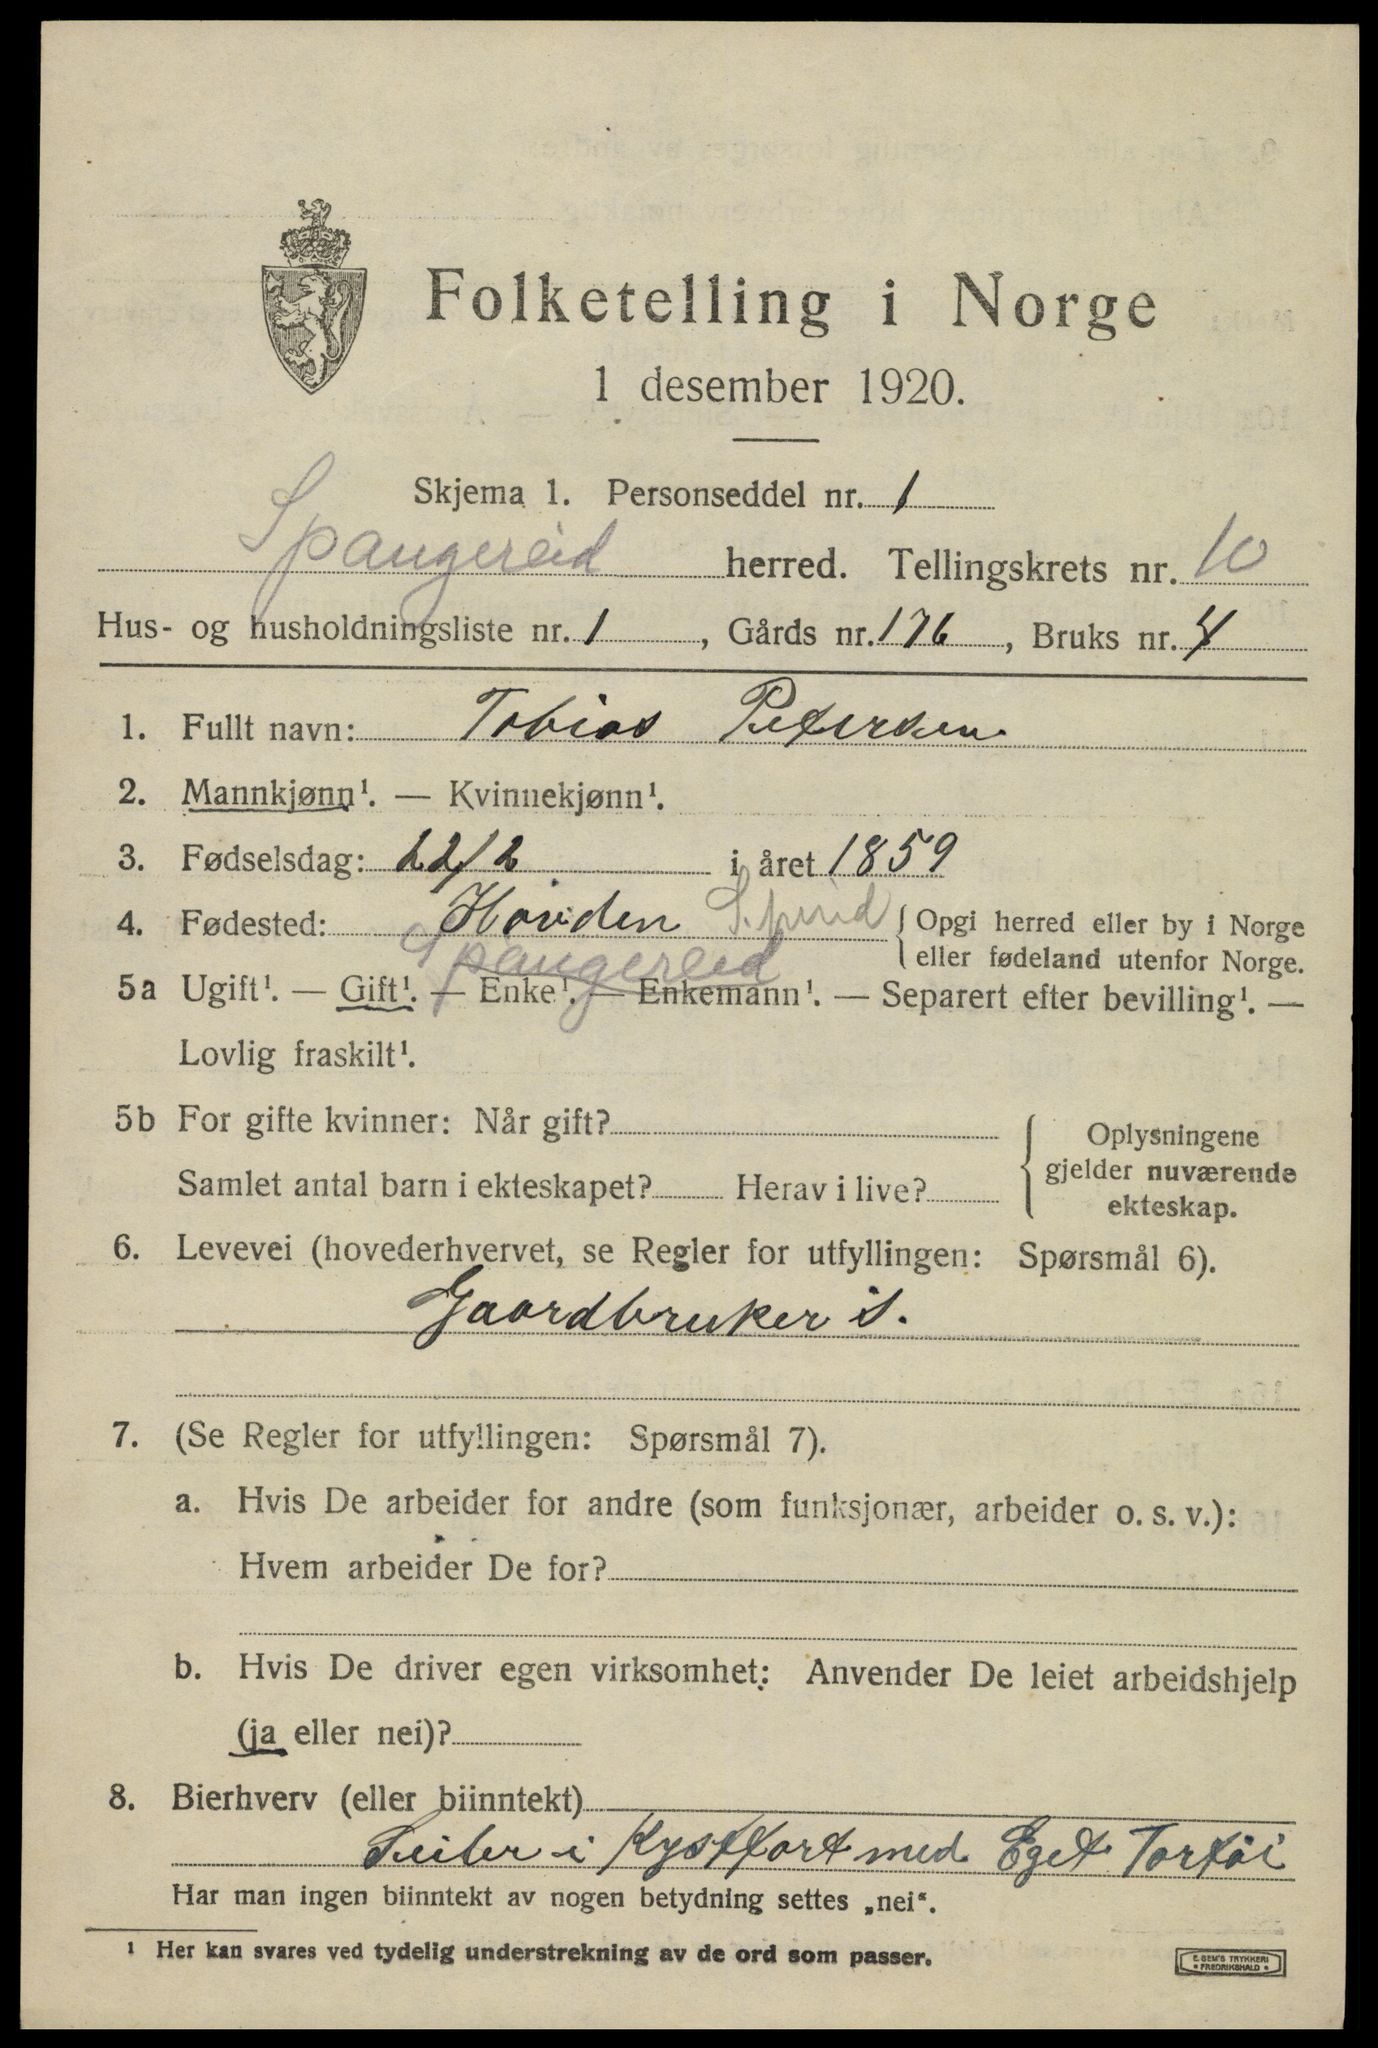 Folketelling i Norge
1 desember 1920.
Skjema 1. Personseddel nr. 1
Spangereid herred. Tellingskrets nr. 10
Hus- og husholdningsliste nr. 1, Gårds nr. 176, Bruks nr. 4
1. Fullt navn: Tobias Petersen
2. Mannkjønn¹. — Kvinnekjønn¹.
3. Fødselsdag: 22/2 i året 1859
4. Fødested: Høvden
{ Opgi herred eller by i Norge
eller fødeland utenfor Norge.
Spangereid
5a Ugift¹. — Gift¹. — Enke¹. — Enkemann¹. — Separert efter bevilling¹. —
Lovlig fraskilt¹.
5b For gifte kvinner: Når gift?
Samlet antal barn i ekteskapet? Herav i live?
{ Oplysningene
gjelder nuværende
ekteskap.
6. Levevei (hovederhvervet, se Regler for utfyllingen: Spørsmål 6).
Gaardbruker S.
7. (Se Regler for utfyllingen: Spørsmål 7).
a. Hvis De arbeider for andre (som funksjonær, arbeider o. s. v.):
Hvem arbeider De for?
b. Hvis De driver egen virksomhet: Anvender De leiet arbeidshjelp
(ja eller nei)?
8. Bierhverv (eller biinntekt)
Seiler i Kystfart med Eget Fartøi
Har man ingen biinntekt av nogen betydning settes „nei“.
¹ Her kan svares ved tydelig understrekning av de ord som passer.
E. SEM'S TRYKKERI
* FREDRIKSHALD *